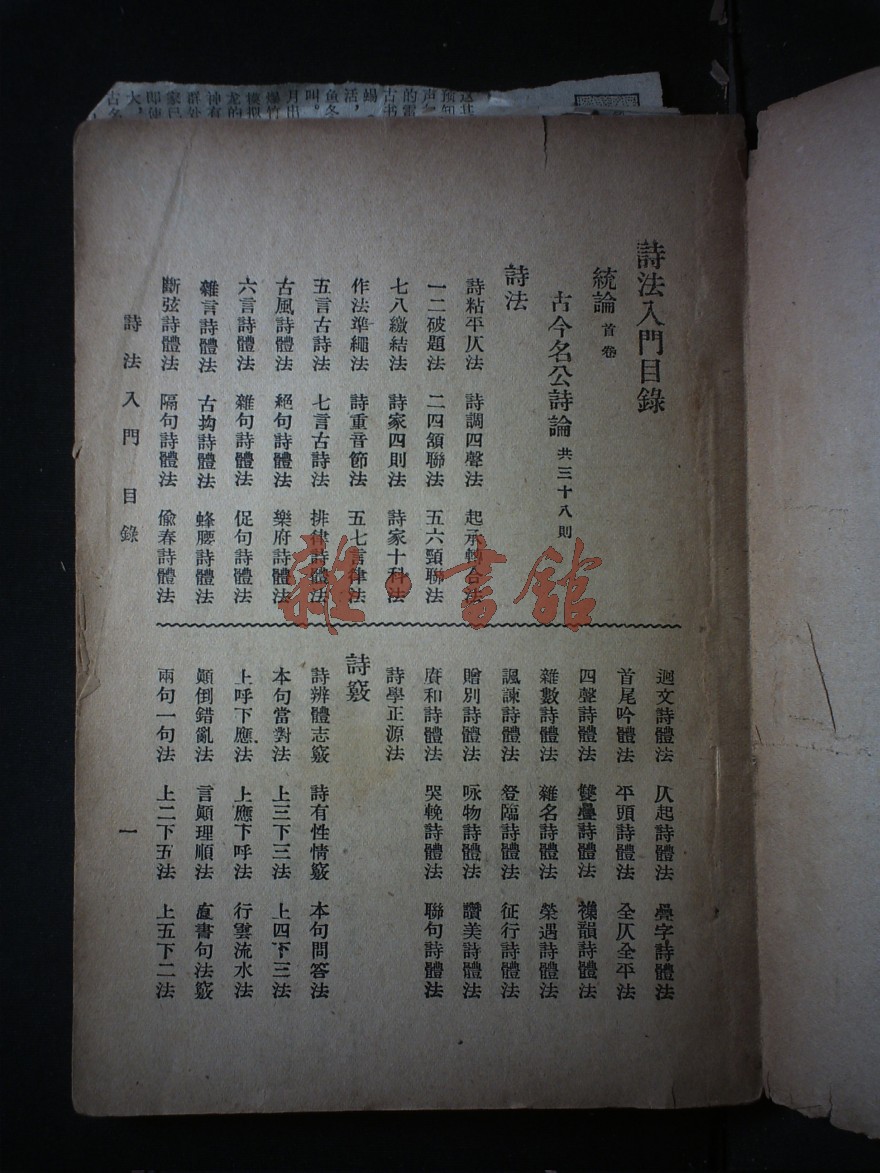 詩法入門目錄
統論 首卷
古今名公詩論 共三十八則
詩法
詩粘平仄法 詩調四聲法 起承轉合法
一二破題法 二四頷聯法 五六頸聯法
七八繳結法 詩家四則法 詩家十科法
作法準繩法 詩重音節法 五七言律法
五言古詩法 七言古詩法 排律詩體法
古風詩體法 絕句詩體法 樂府詩體法
六言詩體法 雜句詩體法 促句詩體法
雜言詩體法 古拘詩體法 蜂腰詩體法
斷弦詩體法 隔句詩體法 偷春詩體法
迴文詩體法 仄起詩體法 疊字詩體法
首尾吟體法 平頭詩體法 全仄全平法
四聲詩體法 雙疊詩體法 襍韻詩體法
雜數詩體法 雜名詩體法 榮遇詩體法
諷諫詩體法 登臨詩體法 征行詩體法
贈別詩體法 咏物詩體法 讚美詩體法
賡和詩體法 哭輓詩體法 聯句詩體法
詩學正源法
詩竅
詩辨體志竅 詩有性情竅 本句問答法
本句當對法 上三下三法 上四下三法
上呼下應法 上應下呼法 行雲流水法
顛倒錯亂法 言顛理順法 直書句法竅
兩句一句法 上二下五法 上五下二法
詩法入門 目錄 一
雜·書館